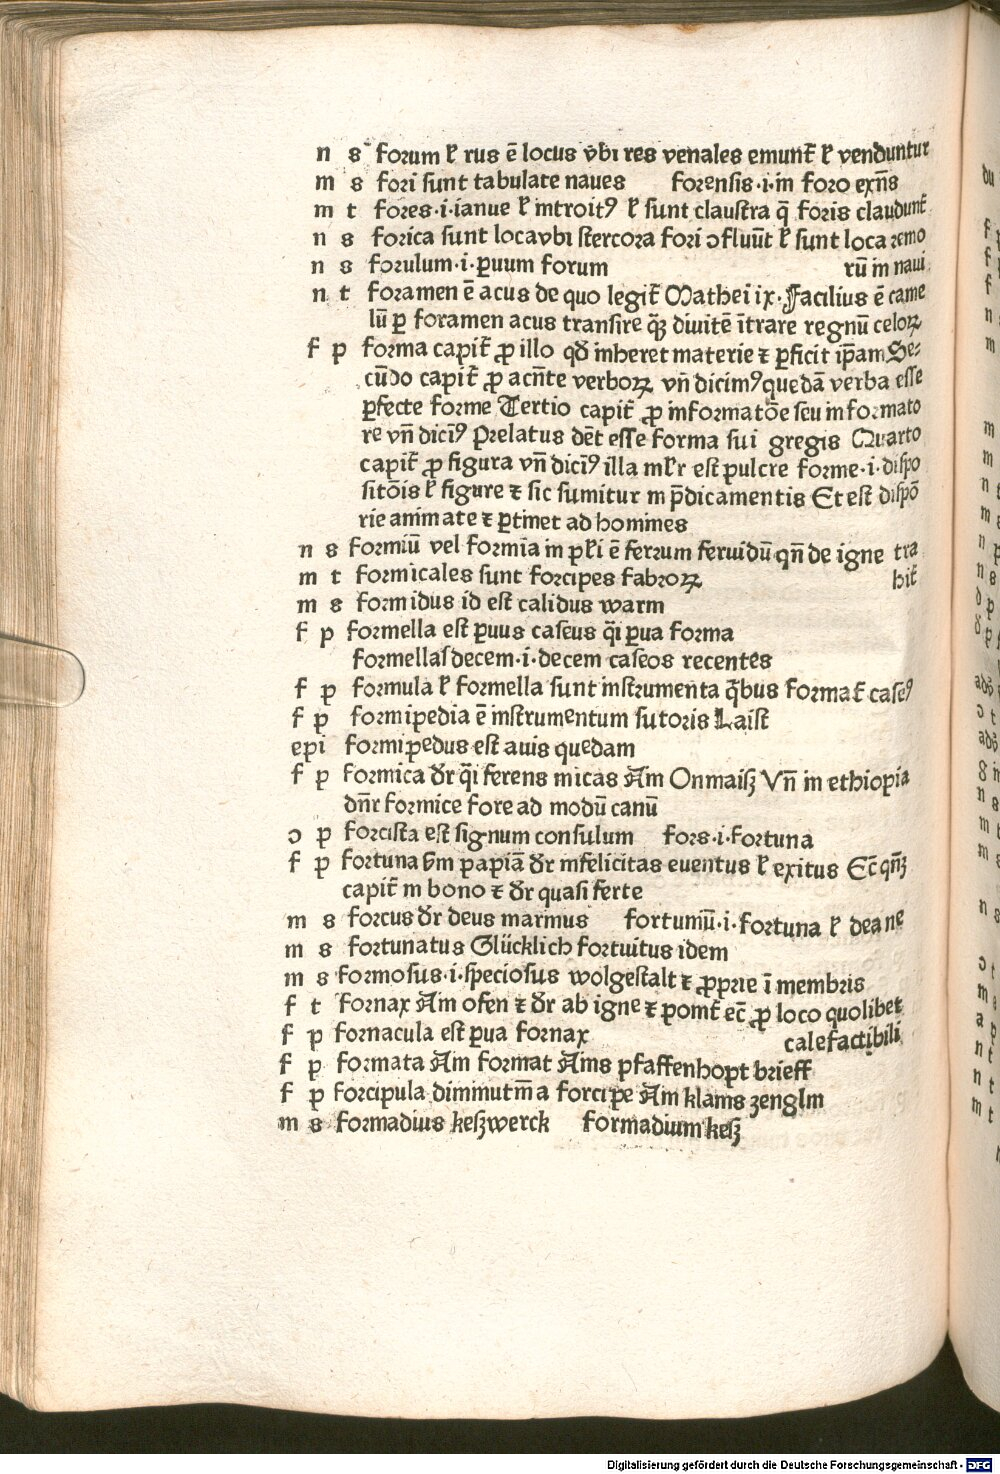 n s forum ł rus ē locus vbi res venales emunt̄ ł venduntur
m s fori sunt tabulate naues forensis·i·in foro exn̄s
m t fores·i·ianue ł introitꝰ ł sunt claustra q̄ foris claudunt̄
n s forica sunt loca vbi stercora fori ↄfluūt ł sunt loca remo
n s forulum·i·ꝑuum forum rū in naui
n t foramen ē acus de quo legit̄ Mathei ix· Facilius ē came
lū ꝑ foramen acus transire qꝫ diuitē ītrare regnū celoꝝ
f p forma capit̄ ꝓ illo qď inheret materie ⁊ ꝑficit ip̄am Se⸗
cūdo capit̄ ꝓ acn̄te verboꝝ vn̄ dicimꝰ quedā verba esse
ꝑfecte forme Tertio capit̄ ꝓ informatōe seu informato
re vn̄ dicīꝰ Prelatus dēt esse forma sui gregis Quarto
capit̄ ꝓ figura vn̄ dicīꝰ illa mƚr est pulcre forme·i·dispo
sitōis ł figure ⁊ sic sumitur in p̄dicamentis Et est dispō
rie animate ⁊ ꝑtinet ad homines
n s formiū vel formia in pƚi ē ferrum feruidū qn̄ de igne tra
m t formicales sunt forcipes fabroꝝ hit̄
m s formidus id est calidus warm
f p formella est ꝑuus caseus q̄i ꝑua forma
formellas decem·i·decem caseos recentes
f p formula ł formella sunt instrumenta q̄bus format̄ caseꝰ
f p formipedia ē instrumentum sutoris Laist
epi formipedus est auis quedam
f p formica dr̄ q̄i ferens micas Am Onmaisz Vn̄ in ethiopia
dn̄r formice fore ad modū canū
ↄ p forcista est signum consulum fors·i·fortuna
f p fortuna vm̄ papiā dr̄ infelicitas euentus ł exitus Ec̄ qn̄ꝫ
capit̄ in bono ⁊ dr̄ quasi ferte
m s forcus dr̄ deus marinus fortumū·i·fortuna ł dea ne
m s fortunatus Glücklich fortuitus idem
m s formosus·i·speciosus wolgestalt ⁊ ꝓprie ī membris
f t fornax Am ofen ⁊ dr̄ ab igne ⁊ pomt̄ ec̄ ꝓ loco quolibet
f p fornacula est ꝑua fornax calefactibili
f p formata Am format Ams pfaffenhopt brieff
f p forcipula diminutm̄ a forcipe Am klains zenglin
m s formadius keszwerck formadium kesz
Digitalisierung gefördert durch die Deutsche Forschungsgemeinschaft - DFG